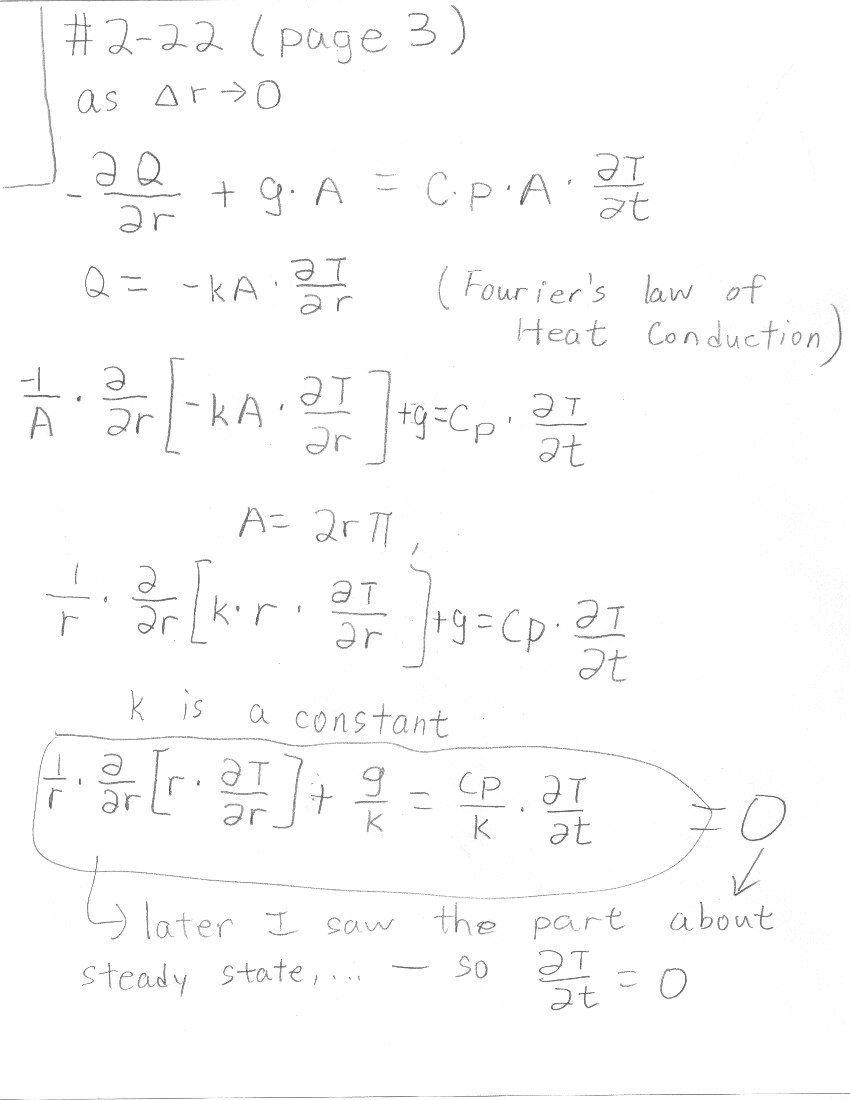 #2-22 (page 3)
as Δr→0
-∂Q/∂r + g·A = C·p·A·∂T/∂t
Q = -kA·∂T/∂r (Fourier's law of
Heat Conduction)
-1/A·∂/∂r[-kA·∂T/∂r]+g=Cp·∂T/∂t
A= 2rπ,
1/r·∂/∂r[k·r·∂T/∂r]+g=Cp·∂T/∂t
k is a constant
1/r·∂/∂r[r·∂T/∂r]+g/k=Cp/k·∂T/∂t = 0
↳ later I saw the part about
steady state,... — so ∂T/∂t = 0